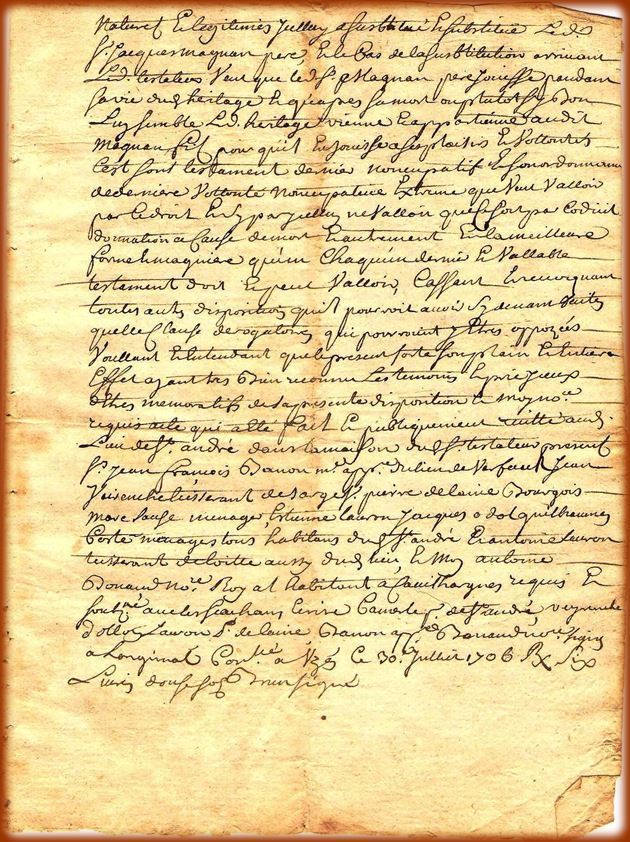 naturel Et legitimes Jcelluy a substitué Et substitue Led.
Sr. Jacques magnan pere, Et le Cas de la substitution arrivant
Led. testateur Veut que led. Sr. Magnan pere Jouisse pendant
sa vie dud. heritage Et quapres sa mort
Luy semble Led. heritage vienne Et appartienne aud.
magnan fils pour quil En Jouisse a ses plaisirs Et Vollontés
C'est son testament dernier noncupatif Et son ordonnance
de derniere Vollonté noncupative Extreme que Veut Valloir
par le droit Et sy par Jcelluy ne Valloit que ce soit par Codicil
donnation a Cause de mort Et autrement En la meilleure
forme Et maniere qu'un Chaquun dernié Et Vallable
testament doit Et peut Valloir, Cassant Et revocquant
toutes autres dispositions quil pourroit avoir Cy devant faites
quelles Clauses derogatoires qui pourroient y Estre oppozées
Voullant Et Entendant que le present sorte son plain Et Entier
Effet ayant tres bien reconnu Les temoins Et prié Jceux
Estre memoratifs de sa presente disposition Et moy nore.
requis acte qui a esté fait Et publiquement recitté aud.
Lieu de St. andré dans la maison dud. Sr. testateur present
Sr. Jean francois Banon me. appre. du lieu de Verfeuil Jean
tisserant de Sr. pierre de laire Bourgois
marc menager Estienne Lauron Jacques adol guilheaumes
Corte menagers tous habitans dud. St. andré Et antoine Lauron
tisserant de aussy dud. lieu, Et Moy antoine
Bonaud nore. Royal habitant a requis Et
soubné. avec les sachans Ecrire de St. andré
d'ollot Lauron P. de laire Banon a Bonaud nore. signes
a Loriginal Conlé. a Uzes Ce 30e. Juillet 1706 Rx Six
Livres douse sols signé